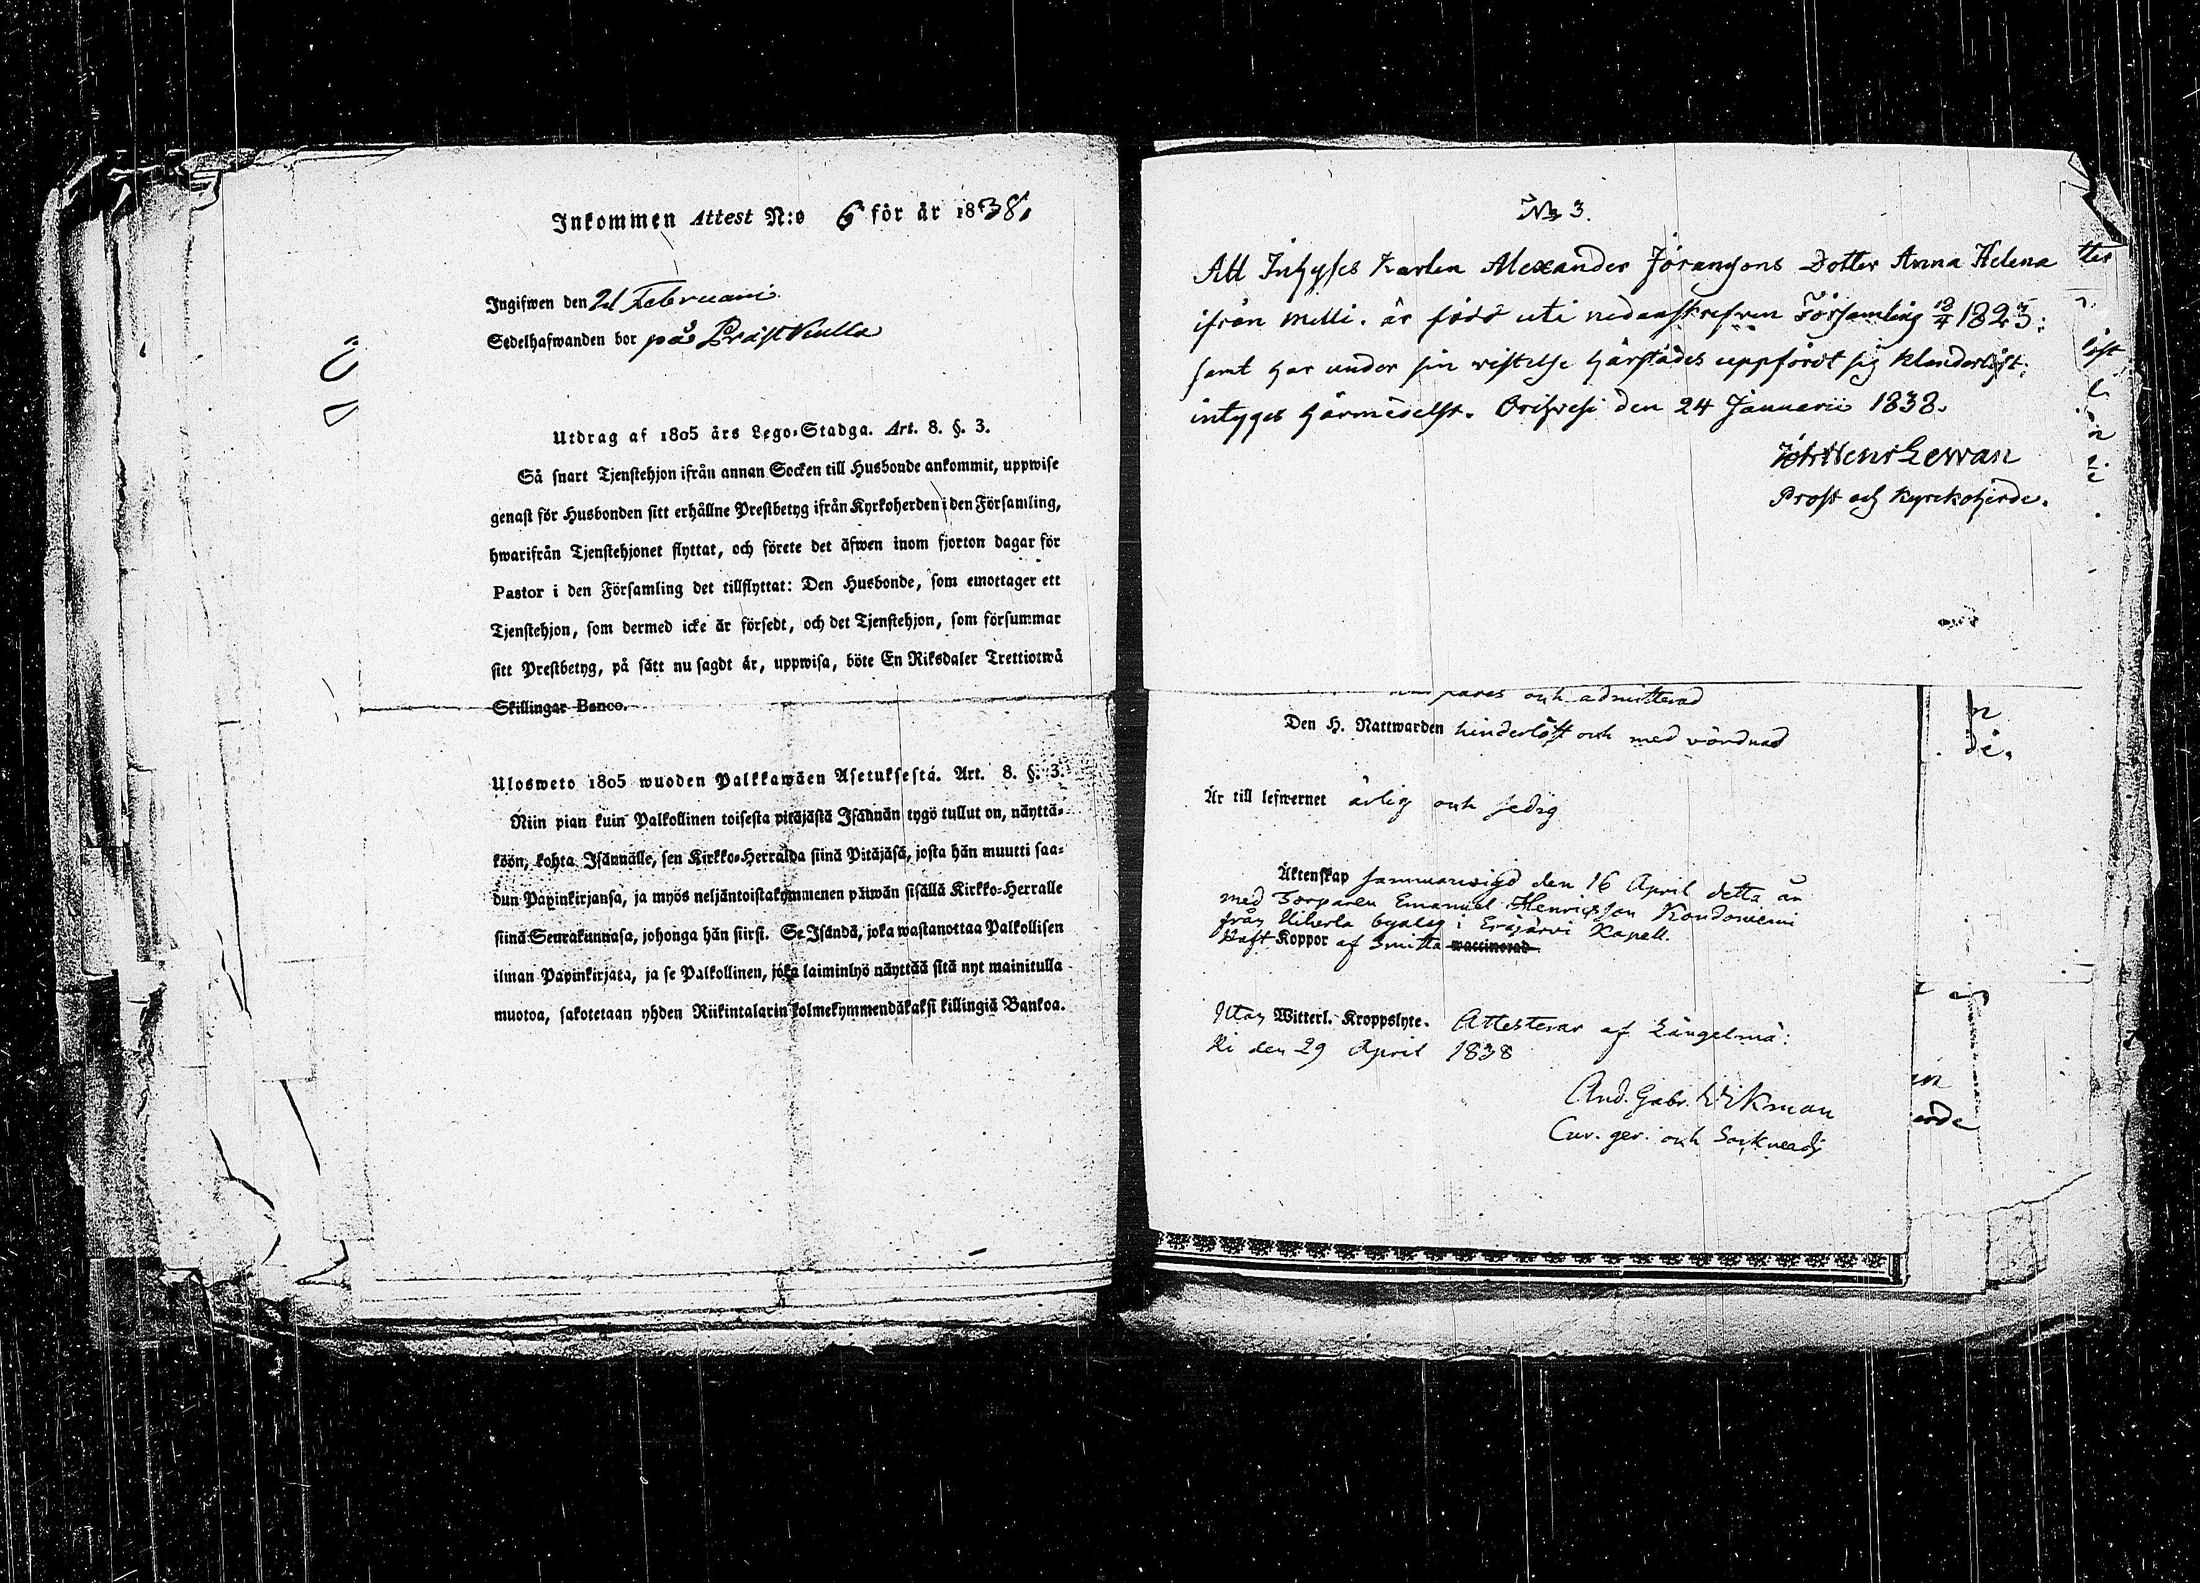 Inkommen Attest N:o 6 för år 1838.
Ingifwen den 21 Februarii
Sedelhafwanden bor på Präst Kulla
Utdrag af 1805 års Lego-Stadga. Art. 8. §. 3.
Så snart Tjenstehjon ifrån annan Socken till Husbonde ankommit, uppwise
genast för Husbonden sitt erhållne Prestbetyg ifrån Kyrkoherden i den Församling,
hwarifrån Tjenstehjonet flyttat, och förete det äfwen inom fjorton dagar för
Pastor i den Församling det tillflyttat: Den Husbonde, som emottager ett
Tjenstehjon, som dermed icke är försedt, och det Tjenstehjon, som försummar
sitt Prestbetyg, på sätt nu sagdt är, uppwisa, böte En Riksdaler Trettiotwå
Skillingar Banco.
Ulosweto 1805 wuoden Palkkawäen Asetuksesta. Art. 8. §. 3.
Niin pian kuin Palkollinen toisesta pitäjästä Isännän tygö tullut on, näyttä-
köön, kohta Isännälle, sen Kirkko-Herralda siinä Pitäjäsä, josta hän muutti saa-
dun Papinkirjansa, ja myös neljäntoistakymmenen päiwän sisällä Kirkko-Herralle
siinä Seurakunnasa, johonga hän siirsi. Se Isändä, joka wastanottaa Palkollisen
ilman Papinkirjata, ja se Palkollinen, joka laiminlyö näyttää sitä nyt mainitulla
muotoa, sakotetaan yhden Riikintalarin kolmekymmendäkaksi killingiä Bankoa.
No 3.
Att Inhyses Karlen Alexander Jöransons Dotter Anna Helena
ifrån Melli. är född uti nedanskrefven Församling 12/4 1823;
samt har under sin vistelse härstädes uppfördt sig klanderlöst;
intyges härmedelst. Orihvesi den 24 Januarii 1838.
Joh Henr Lewan
Prost och Kyrckoherde.
och admitterad
Den H. Nattwarden hinderlöst och med vördnad
Är till lefwernet ärlig och sedig
Äktenskap sammanvigd den 16 April detta år
med Torparen Emanuel Henricsson Kondoniemi
från Uiherla byalag i Eräjärvi Kapell.
Haft Koppor af Smitta waccinerad
Utan Witterl. Kroppslyte. Attesterar af Längelmä:
ki den 29 April 1838
And. Gabr. Wikman
Cur. ger. och Sockneadj